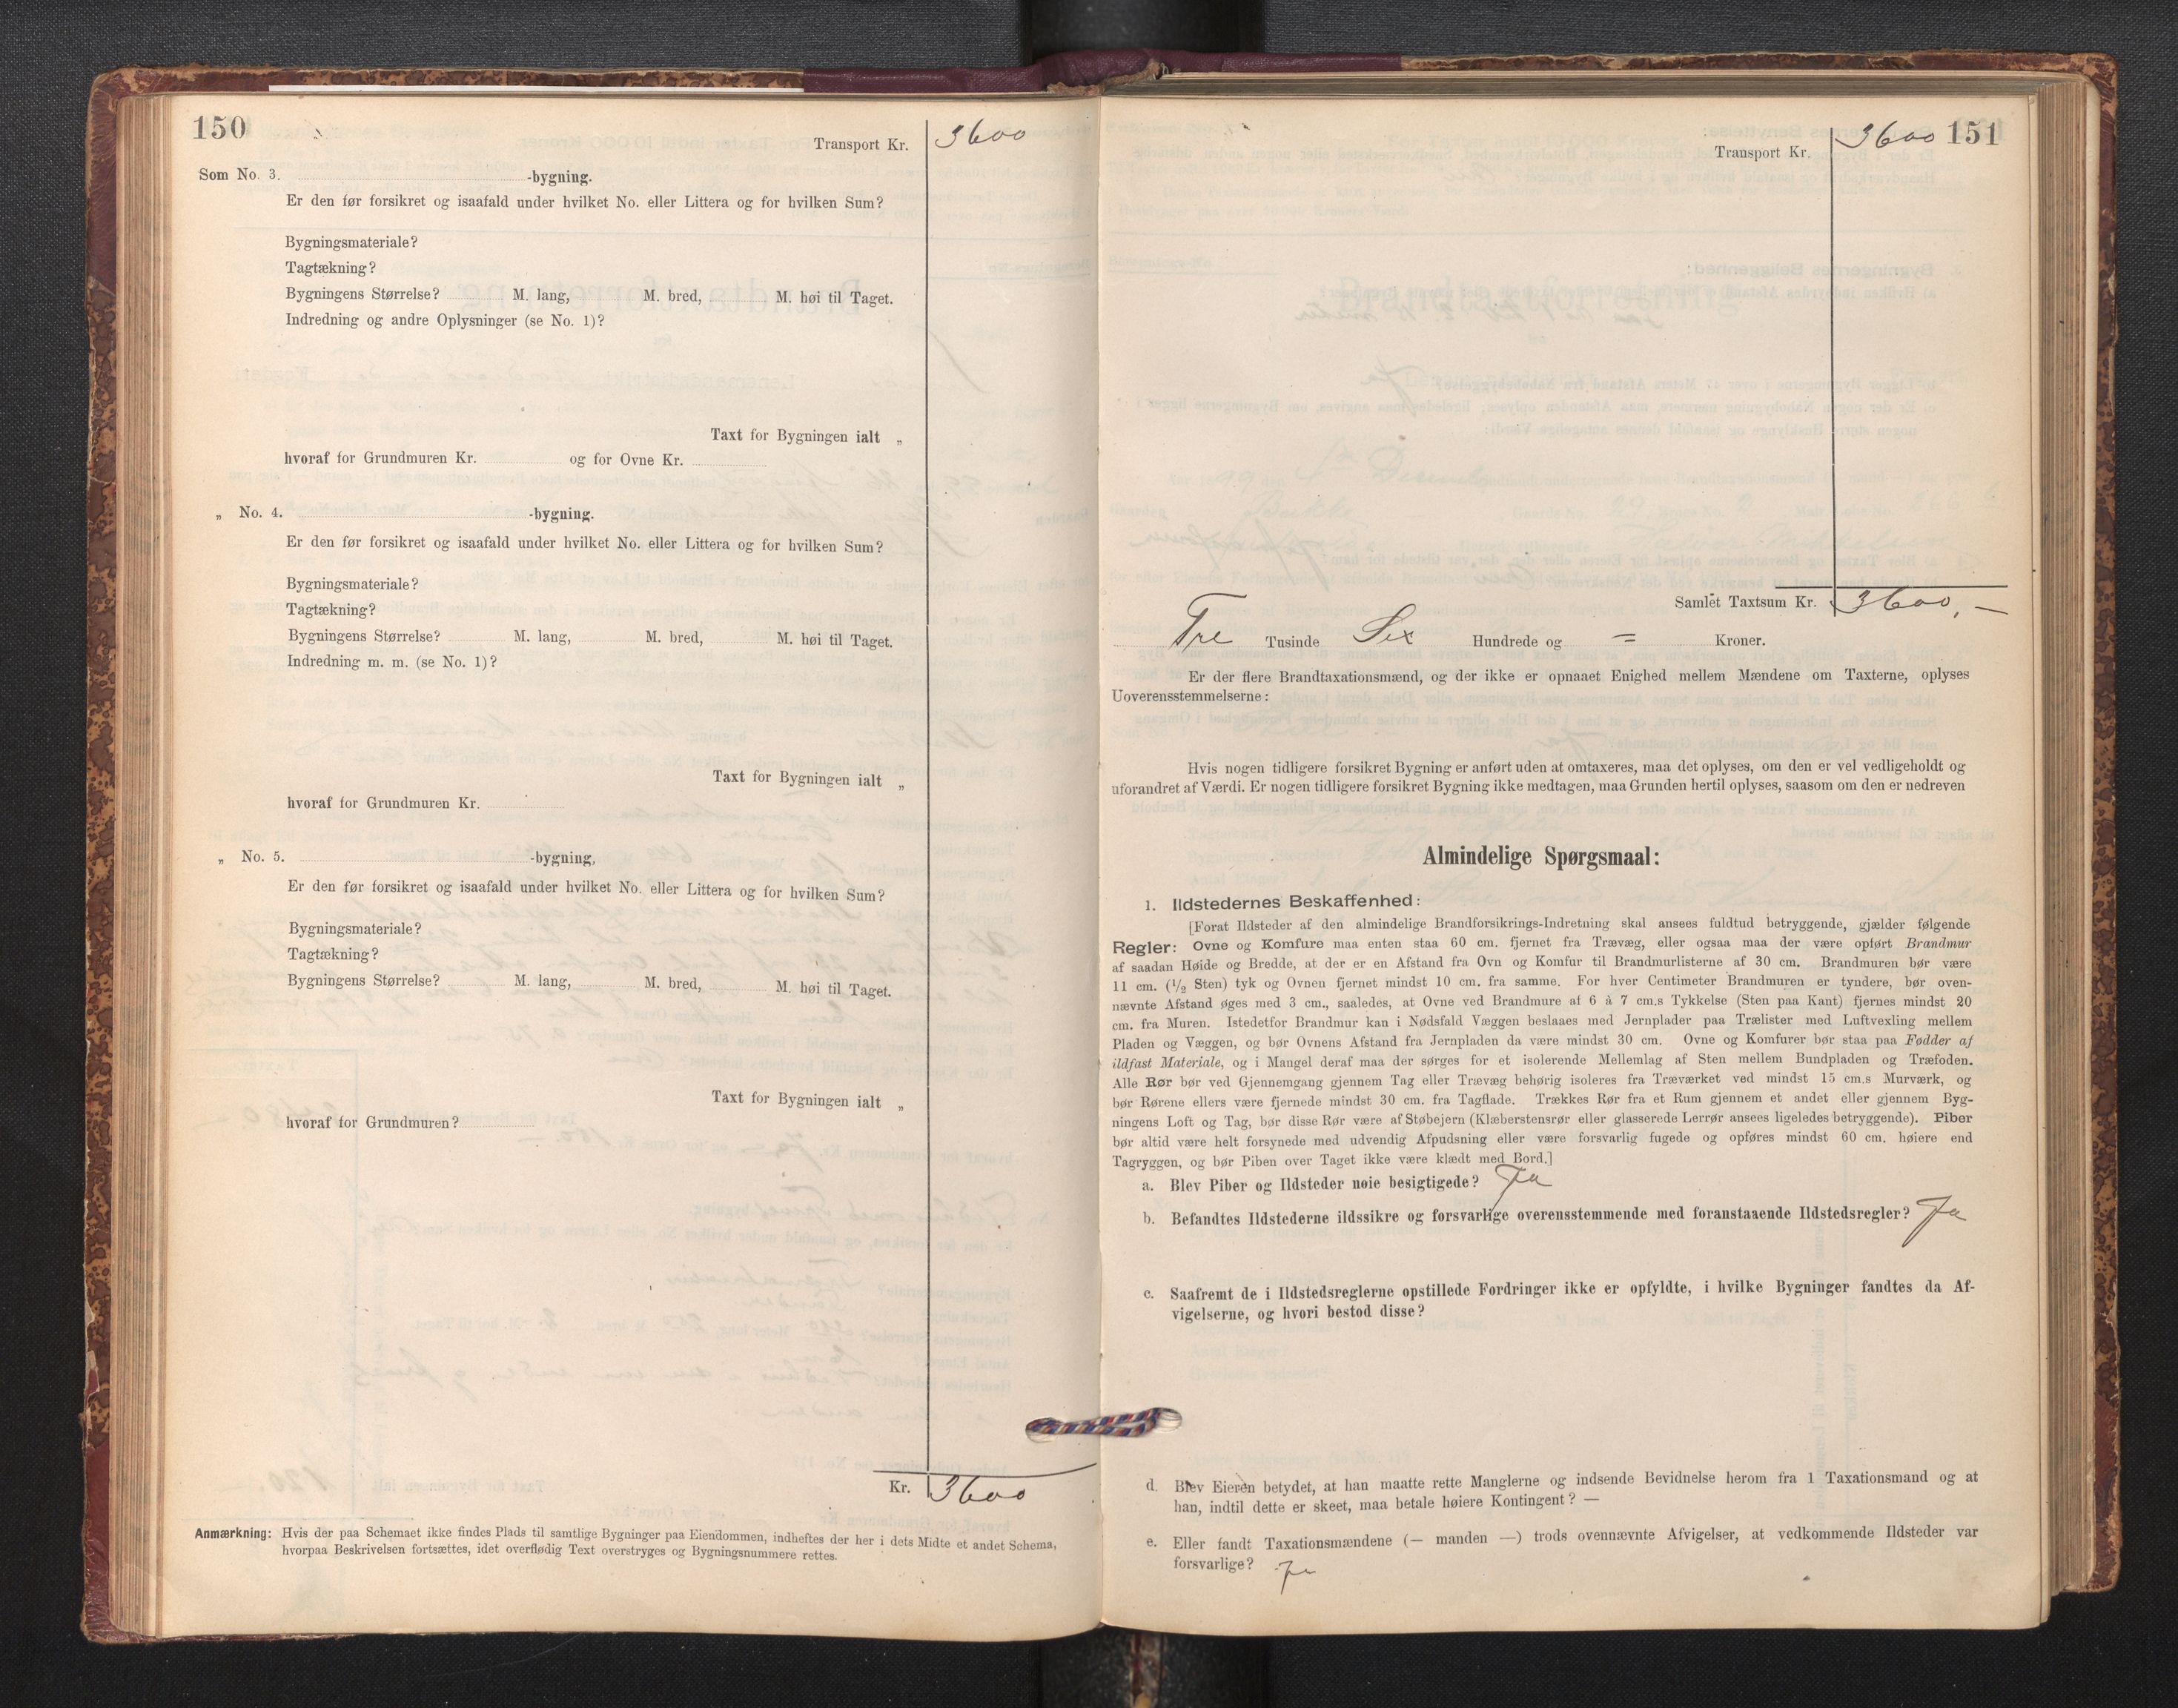 150
Transport Kr. 3600
Som No. 3. -bygning.
Er den før forsikret og isaafald under hvilket No. eller Littera og for hvilken Sum?
Bygningsmateriale?
Tagtækning?
Bygningens Størrelse? M. lang, M. bred, M. høi til Taget.
Indredning og andre Oplysninger (se No. 1)?
Taxt for Bygningen ialt „
hvoraf for Grundmuren Kr. og for Ovne Kr.
„ No. 4. -bygning.
Er den før forsikret og isaafald under hvilket No. eller Littera og for hvilken Sum?
Bygningsmateriale?
Tagtækning?
Bygningens Størrelse? M. lang, M. bred, M. høi til Taget.
Indredning m. m. (se No. 1)?
Taxt for Bygningen ialt „
hvoraf for Grundmuren Kr.
„ No. 5. -bygning,
Er den før forsikret og isaafald under hvilket No. eller Littera og for hvilken Sum?
Bygningsmateriale?
Tagtækning?
Bygningens Størrelse? M. lang, M. bred, M. høi til Taget.
Taxt for Bygningen ialt „
hvoraf for Grundmuren?
Kr. 3600
Anmærkning: Hvis der paa Schemaet ikke findes Plads til samtlige Bygninger paa Eiendommen, indheftes der her i dets Midte et andet Schema,
hvorpaa Beskrivelsen fortsættes, idet overflødig Text overstryges og Bygningsnummere rettes.
151
Transport Kr. 3600
Samlet Taxtsum Kr. 3600,—
Tre Tusinde Sex Hundrede og = Kroner.
Er der flere Brandtaxationsmænd, og der ikke er opnaaet Enighed mellem Mændene om Taxterne, oplyses
Uoverensstemmelserne:
Hvis nogen tidligere forsikret Bygning er anført uden at omtaxeres, maa det oplyses, om den er vel vedligeholdt og
uforandret af Værdi. Er nogen tidligere forsikret Bygning ikke medtagen, maa Grunden hertil oplyses, saasom om den er nedreven
Almindelige Spørgsmaal:
1. Ildstedernes Beskaffenhed:
[Forat Ildsteder af den almindelige Brandforsikrings-Indretning skal ansees fuldtud betryggende, gjælder følgende
Regler: Ovne og Komfure maa enten staa 60 cm. fjernet fra Trævæg, eller ogsaa maa der være opført Brandmur
af saadan Høide og Bredde, at der er en Afstand fra Ovn og Komfur til Brandmurlisterne af 30 cm. Brandmuren bør være
11 cm. (1/2 Sten) tyk og Ovnen fjernet mindst 10 cm. fra samme. For hver Centimeter Brandmuren er tyndere, bør oven-
nævnte Afstand øges med 3 cm., saaledes, at Ovne ved Brandmure af 6 à 7 cm.s Tykkelse (Sten paa Kant) fjernes mindst 20
cm. fra Muren. Istedetfor Brandmur kan i Nødsfald Væggen beslaaes med Jernplader paa Trælister med Luftvexling mellem
Pladen og Væggen, og bør Ovnens Afstand fra Jernpladen da være mindst 30 cm. Ovne og Komfurer bør staa paa Fødder af
ildfast Materiale, og i Mangel deraf maa der sørges for et isolerende Mellemlag af Sten mellem Bundpladen og Træfoden.
Alle Rør bør ved Gjennemgang gjennem Tag eller Trævæg behørig isoleres fra Træværket ved mindst 15 cm.s Murværk, og
bør Rørene ellers være fjernede mindst 30 cm. fra Tagflade. Trækkes Rør fra et Rum gjennem et andet eller gjennem Byg-
ningens Loft og Tag, bør disse Rør være af Støbejern (Klæberstensrør eller glasserede Lerrør ansees ligeledes betryggende). Piber
bør altid være helt forsynede med udvendig Afpudsning eller være forsvarlig fugede og opføres mindst 60 cm. høiere end
Tagryggen, og bør Piben over Taget ikke være klædt med Bord.]
a. Blev Piber og Ildsteder nøie besigtigede? Ja
b. Befandtes Ildstederne ildssikre og forsvarlige overensstemmende med foranstaaende Ildstedsregler? Ja
c. Saafremt de i Ildstedsreglerne opstillede Fordringer ikke er opfyldte, i hvilke Bygninger fandtes da Af-
vigelserne, og hvori bestod disse?
d. Blev Eieren betydet, at han maatte rette Manglerne og indsende Bevidnelse herom fra 1 Taxationsmand og at
han, indtil dette er skeet, maa betale høiere Kontingent? —
e. Eller fandt Taxationsmændene (— manden —) trods ovennævnte Afvigelser, at vedkommende Ildsteder var
forsvarlige? Ja